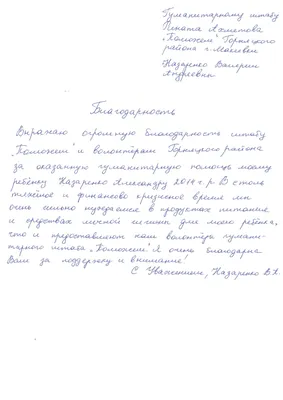 Гуманитарному штабу
Рината Ахметова
"Поможем" Горняцкого
района г. Макеевки
Назаренко Валерии
Андреевны
Благодарность
Выражаю огромную благодарность штабу
"Поможем" и волонтёрам Горняцкого района
за оказанную гуманитарную помощь моему
ребёнку Назаренко Александру 2014 г.р. В столь
тяжёлое и финансово кризисное время мы
очень сильно нуждаемся в продуктах питания
и средствах личной гигиены для моего ребёнка,
что и предоставляет нам волонтёры гумани-
тарного штаба "Поможем". Я очень благодарна
Вам за поддержку и внимание!
С Уважением, Назаренко В.А.